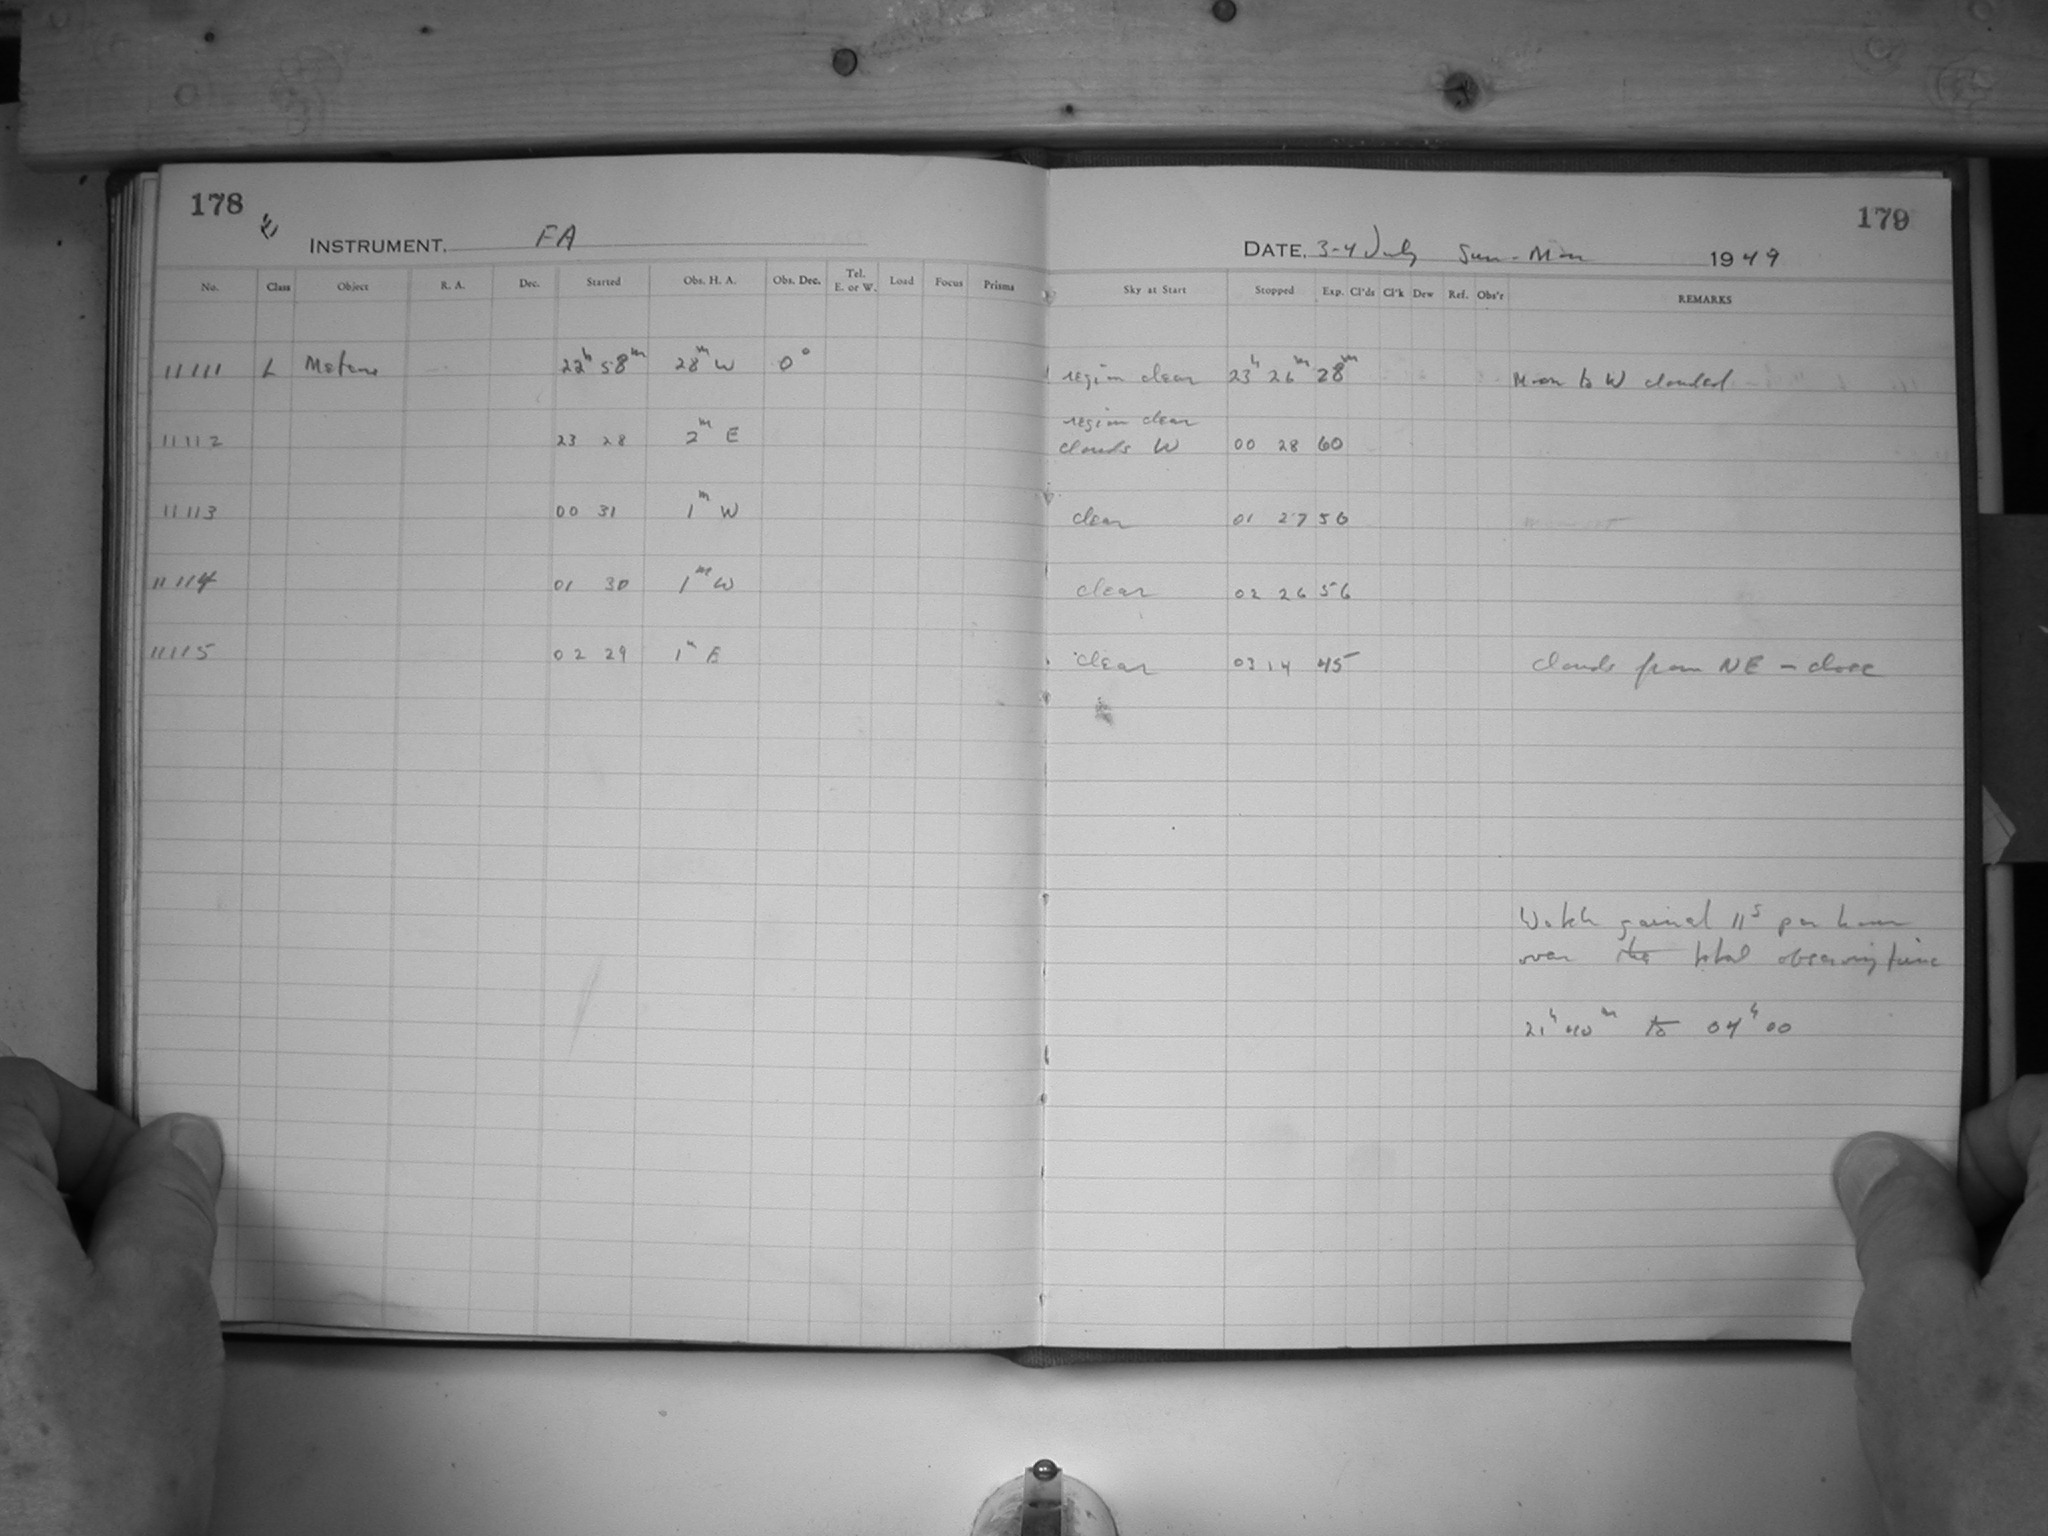 178
179
INSTRUMENT. FA
DATE. 3-4 July Sun - Mon 1949
No. Class Object R. A. Dec. Started Obs. H. A. Obs. Dec. Tel. E. or W. Load Focus Prisms Sky at Start Stopped Exp. Cl'ds Cl'k Dew Ref. Obs'r REMARKS
11111 L Meteors 22h 58m 28m W 0° region clear 23h 26m 28m Moon to W clouded
11112 23 28 2m E region clear clouds W 00 28 60
11113 00 31 1m W clear 01 27 56
11114 01 30 1m W clear 02 26 56
11115 02 29 1m E clear 03 14 45 clouds from NE - close
Watch gained 11s per hour
over the total observing time
21h 40m to 04h 00